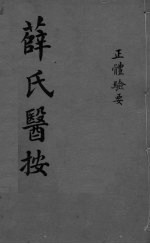 正體類要
薛氏醫按